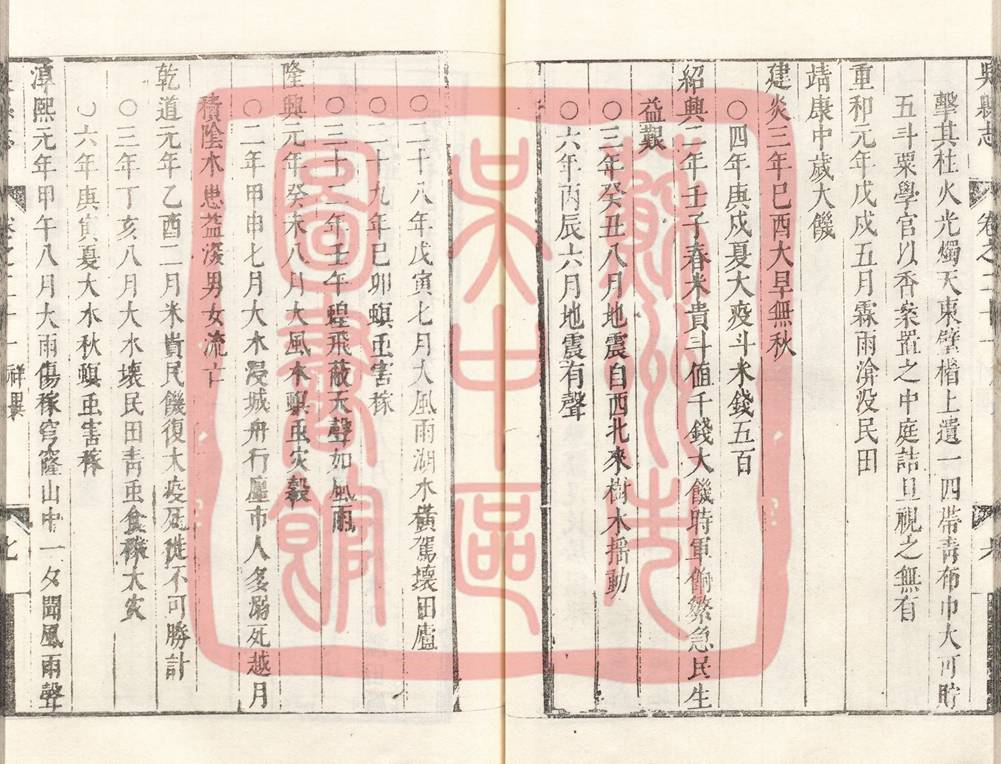 吳縣志 卷之二十一
擊其杜火光燭天東壁楷上遺一四帶青布巾大可貯
五斗粟學官以香案置之中庭詰旦視之無有
重和元年戊戍五月霖雨渰没民田
靖康中歲大饑
建炎三年巳酉大旱無秋
○四年庚戍夏大疫斗米錢五百
紹興二年壬子春米貴斗值千錢大饑時軍餉繁急民生
益艱
○三年癸丑八月地震自西北來樹木揺動
○六年丙辰六月地震有聲
○二十八年戊寅七月大風雨湖水橫駕壞田廬
○二十九年巳卯螟䖝害稼
○三十二年壬午蝗飛蔽天聲如風雨
隆興元年癸未八月大風水螟䖝灾穀
○二年甲申七月大水浸城舟行廛市人多溺死越月
積陰水患益深男女流亡
乾道元年乙酉二月米貴民饑復大疫死徙不可勝計
○三年丁亥八月大水壞民田青䖝食穗大灾
○六年庚寅夏大水秋螟䖝害稼
淳熙元年甲午八月大雨傷稼穹窿山中一夕聞風雨聲
卷之二十一 祥異 七
蘇州先
吳中區
圖書館